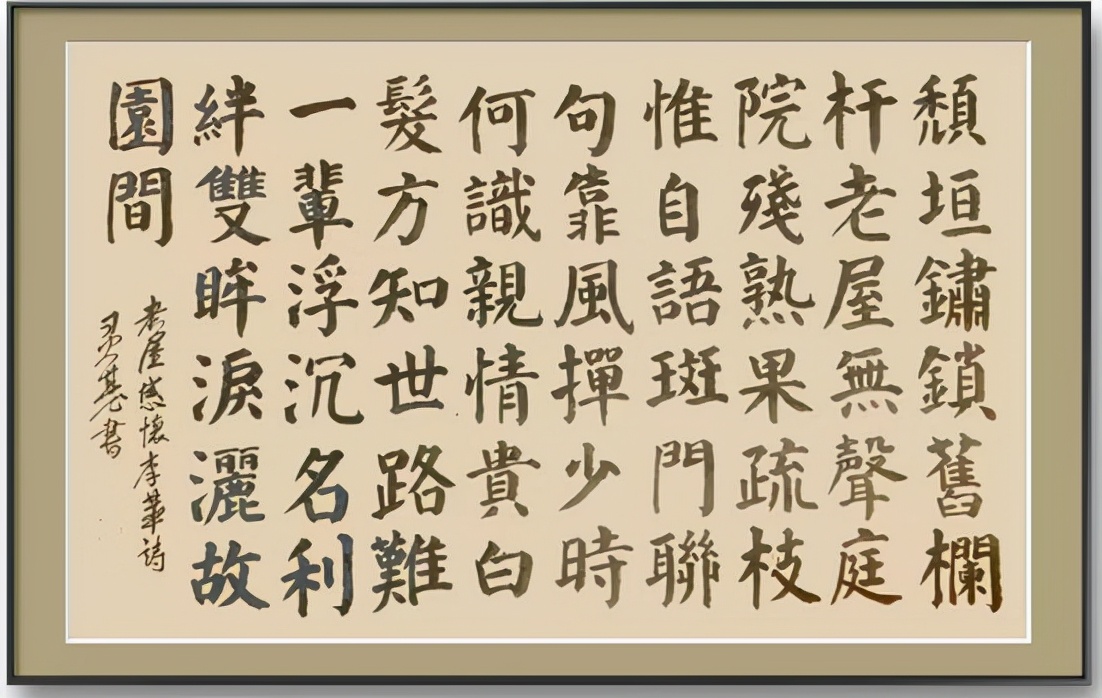 頹垣鏽鎖舊欄
杆老屋無聲庭
院殘熟果疏枝
惟自語斑門聯
句靠風撣少時
何識親情貴白
髮方知世路難
一輩浮沉名利
絆雙眸淚灑故
園間
老屋感懷李華詩
書